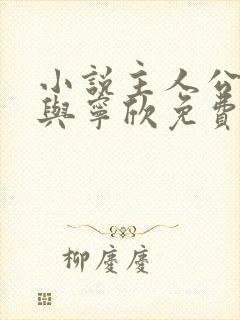 小說主人公
與寧欣免費
柳慶慶